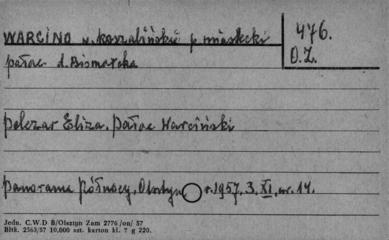 WARCINO w. koszalińskie p miastecki
476.
O.Z.
pałac d. Bismarcka
Pelczar Eliza. Pałac Warciński
Panorama Północy, Olsztyn r. 1957. 3. XI. nr. 14.
Jedn. C.W.D 8/Olsztyn Zam 2776 /on/ 57
Bltk. 2563/57 10.000 szt. karton kl. 7 g 220.